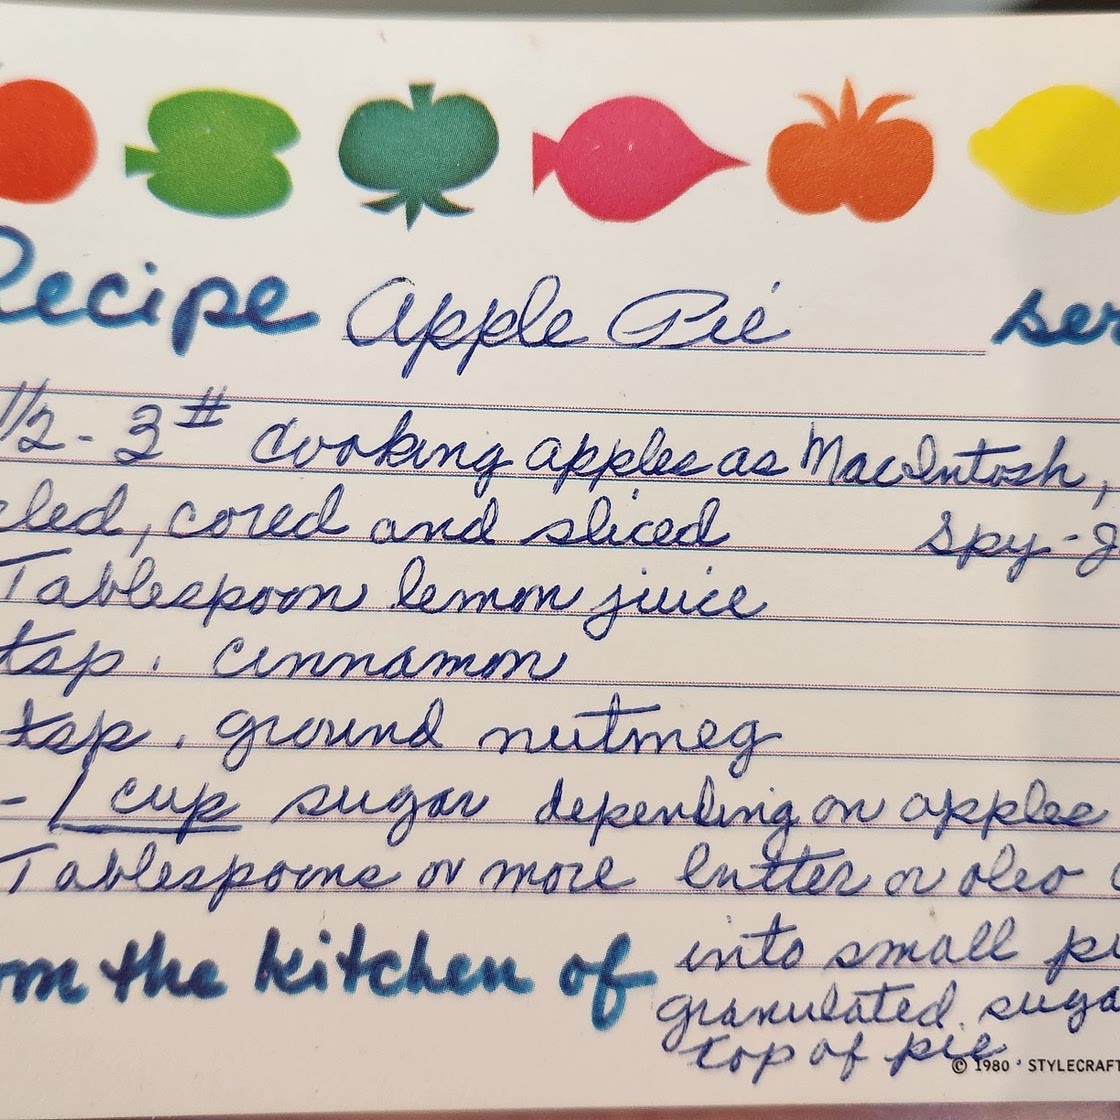 Recipe Apple Pie ser
1/2 - 3# cooking apples as MacIntosh,
eled, cored and sliced Spy-
Tablespoon lemon juice
tsp. cinnamon
tsp. ground nutmeg
- 1 cup sugar depending on apples
Tablespoons or more butter or oleo
om the kitchen of into small pi
granulated suga
top of pie
© 1980 · STYLECRAFT